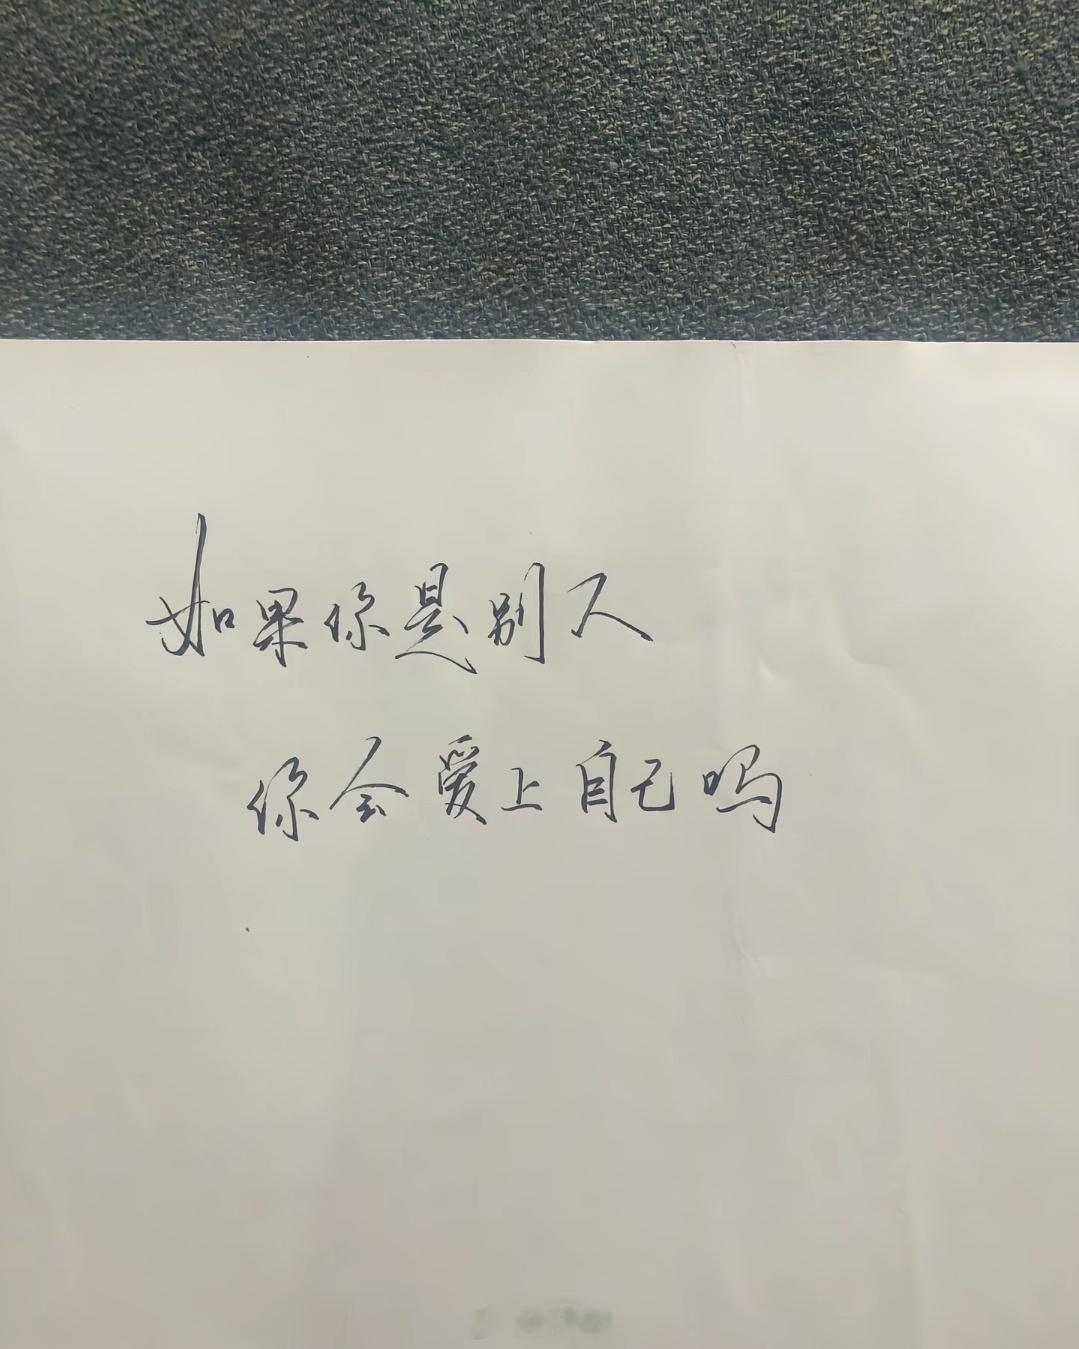 如果你是别人
你会爱上自己吗